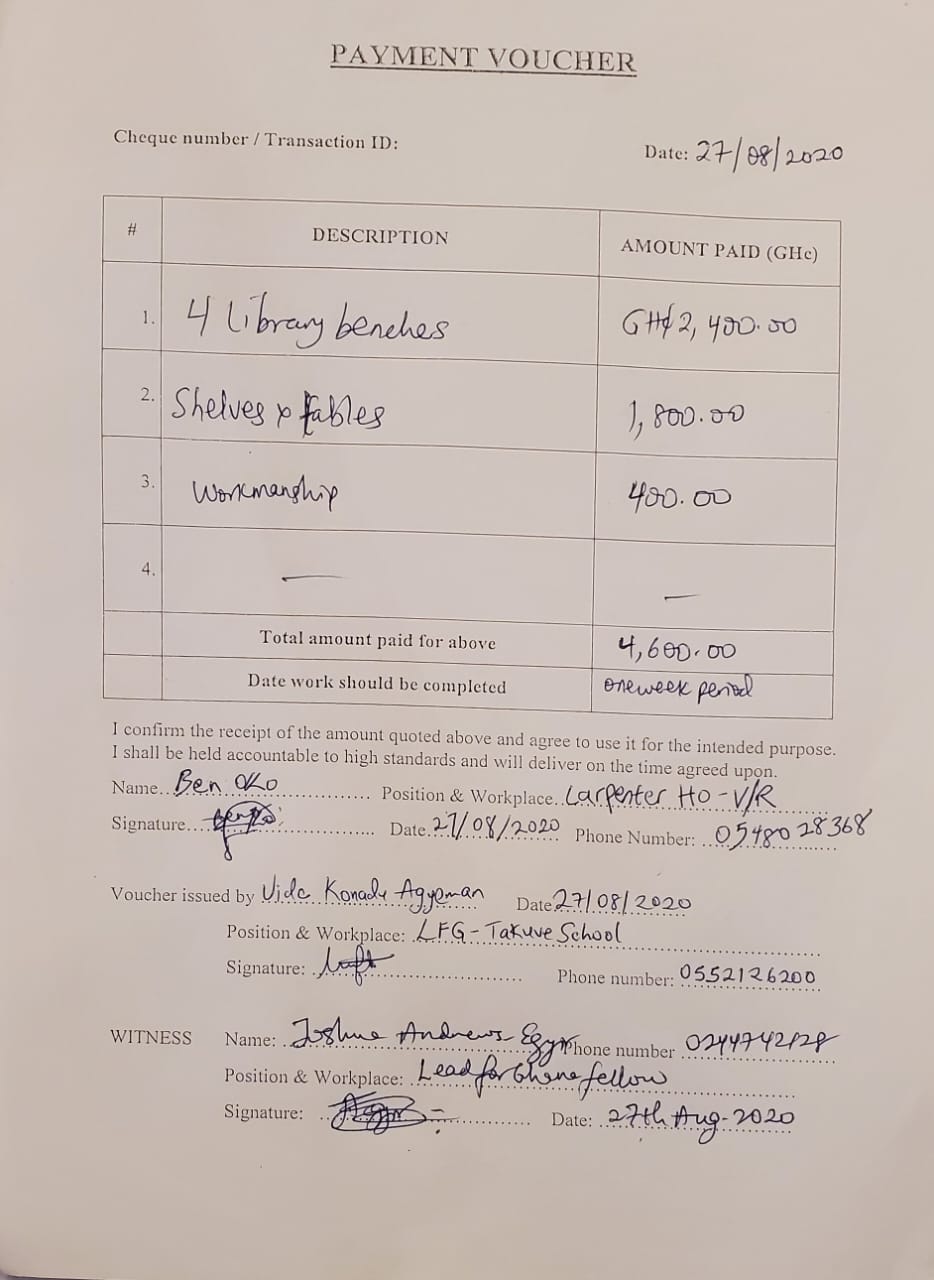 PAYMENT VOUCHER
Cheque number / Transaction ID:
Date: 27/08/2020
# DESCRIPTION AMOUNT PAID (GHc)
1. 4 library benches GH¢2,400.00
2. Shelves x tables 1,800.00
3. Workmanship 400.00
4. — —
Total amount paid for above 4,600.00
Date work should be completed one week period
I confirm the receipt of the amount quoted above and agree to use it for the intended purpose.
I shall be held accountable to high standards and will deliver on the time agreed upon.
Name.. Ben Oko Position & Workplace.. Carpenter HO - V/R
Signature... Date. 27/08/2020 Phone Number: 0548028368
Voucher issued by Vida Konadu Agyeman Date 27/08/2020
Position & Workplace: LFG - Takuve School
Signature: Phone number: 0552126200
WITNESS Name: Joshua Andrews Phone number
Position & Workplace: Lead for Ghana fellow
Signature: Date: 27th Aug-2020